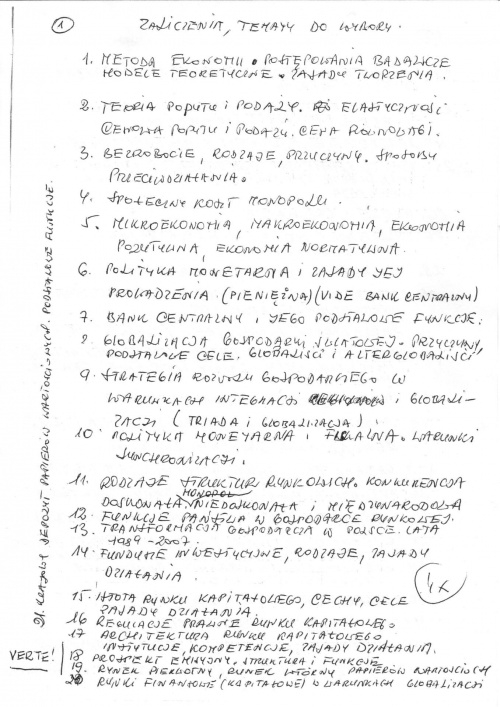 1
ZALICZENIA, TEMATY DO WYBORY.
1. METODA EKONOMII. POSTĘPOWANIA BADAWCZE
MODELE TEORETYCZNE. ZASADY TWORZENIA.
2. TEORIA POPYTU I PODAŻY. ELASTYCZNOŚĆ
CENOWA POPYTU I PODAŻY. CENA RÓWNOWAGI.
3. BEZROBOCIE, RODZAJE, PRZYCZYNY. SPOSOBY
PRZECIWDZIAŁANIA.
4. SPOŁECZNY KOSZT MONOPOLU.
5. MIKROEKONOMIA, MAKROEKONOMIA, EKONOMIA
POZYTYWNA, EKONOMIA NORMATYWNA.
6. POLITYKA MONETARNA I ZASADY JEJ
PROWADZENIA. (PIENIĘŻNA) (VIDE BANK CENTRALNY)
7. BANK CENTRALNY I JEGO PODSTAWOWE FUNKCJE.
8. GLOBALIZACJA GOSPODARKI ŚWIATOWEJ. PRZYCZYNY,
PODSTAWOWE CELE. GLOBALIŚCI I ALTERGLOBALIŚCI,
9. STRATEGIA ROZWOJU GOSPODARCZEGO W
WARUNKACH INTEGRACJI I GLOBALI-
ZACJI (TRIADA I GLOBALIZACJA)
10. POLITYKA MONETARNA I FISKALNA. WARUNKI
SYNCHRONIZACJI.
11. RODZAJE STRUKTUR RYNKOWYCH. KONKURENCJA
MONOPOL
DOSKONAŁA, NIEDOSKONAŁA I MIĘDZYNARODOWA
12. FUNKCJE PAŃSTWA W GOSPODARCE RYNKOWEJ.
13. TRANSFORMACJA GOSPODARCZA W POLSCE. LATA
1989-2007.
14. FUNDUSZE INWESTYCYJNE, RODZAJE, ZASADY
DZIAŁANIA
15. ISTOTA RYNKU KAPITAŁOWEGO, CECHY, CELE
ZASADY DZIAŁANIA.
16 REGULACJE PRAWNE RYNKU KAPITAŁOWEGO.
17 ARCHITEKTURA RYNKU KAPITAŁOWEGO,
INSTYTUCJE, KOMPETENCJE, ZASADY DZIAŁANIA.
18 PROSPEKT EMISYJNY. STRUKTURA I FUNKCJE
19. RYNEK PIERWOTNY, RYNEK WTÓRNY PAPIERÓW WARTOŚCIOWYCH
20 RYNKI FINANSOWE (KAPITAŁOWE) W WARUNKACH GLOBALIZACJI
21. KRAJOWY DEPOZYT PAPIERÓW WARTOŚCIOWYCH. PODSTAWOWE FUNKCJE.
VERTE!